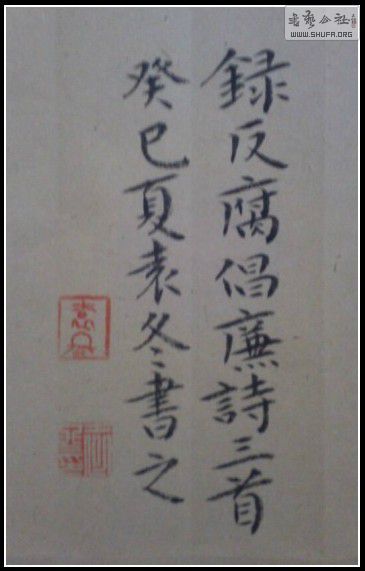 録反腐倡廉詩三首
癸巳夏袁冬書之
書藝公社
WWW.SHUFA.ORG